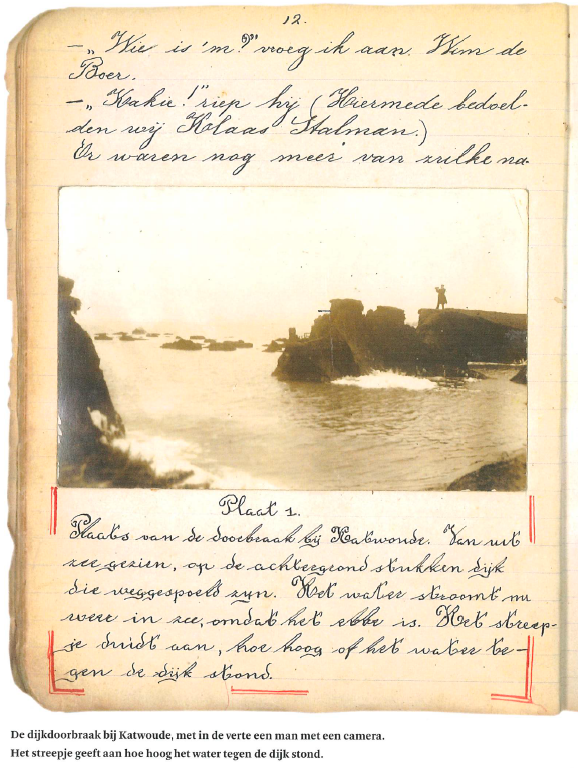 12.
— „ Wie is 'm?" vroeg ik aan Wim de
Boer.
— „ Kakie!" riep hij (Hiermede bedoel-
den wij Klaas Stalman.)
Er waren nog meer van zulke na-
Plaat 1.
Plaats van de doorbraak bij Katwoude. Van uit
zee gezien, op de achtergrond stukken dijk
die weggespoeld zijn. Het water stroomt nu
weer in zee, omdat het ebbe is. Het streep-
je duidt aan, hoe hoog of het water te-
gen de dijk stond.
De dijkdoorbraak bij Katwoude, met in de verte een man met een camera.
Het streepje geeft aan hoe hoog het water tegen de dijk stond.